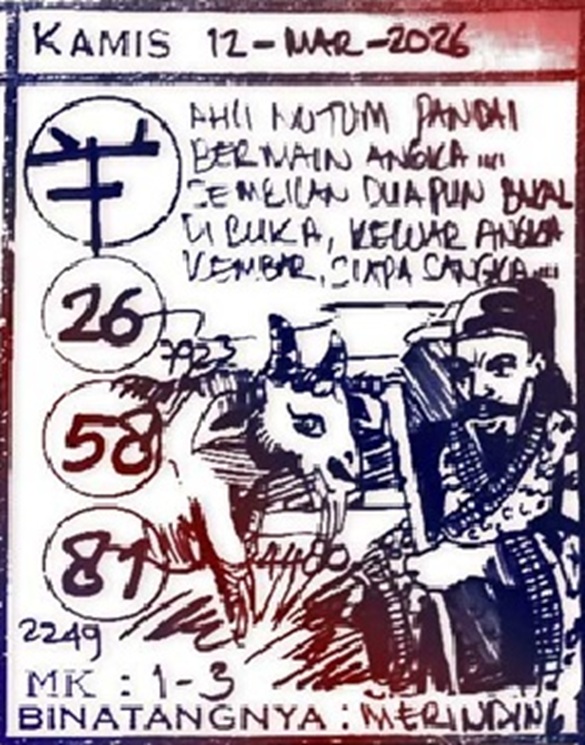 KAMIS 12-MAR-2026
AHLI NUTUM PANDAI
BERMAIN ANGKA ....
SEMBILAN DUAPUN BAKAL
DI BUKA, KELUAR ANGKA
KEMBAR, SIAPA SANGKA...
羊
26
7923
58
81
4480
2249
MK : 1-3
BINATANGNYA : MERINDING